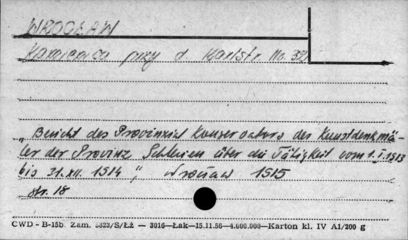 WROCŁAW
Kamienica przy d. Karlstr. Nr. 32
„Bericht des Provinzial Konservators des Kunstdenkmä-
ler der Provinz Schlesien über die Tätigkeit vom 1.I.1913
bis 31.XII. 1914", Wrocław 1915
str. 18
CWD - B-15b. Zam. /S/Łż — 3016 — Łak — 15.11.56 — 4.000.000 — Karton kl. IV A1/200 g